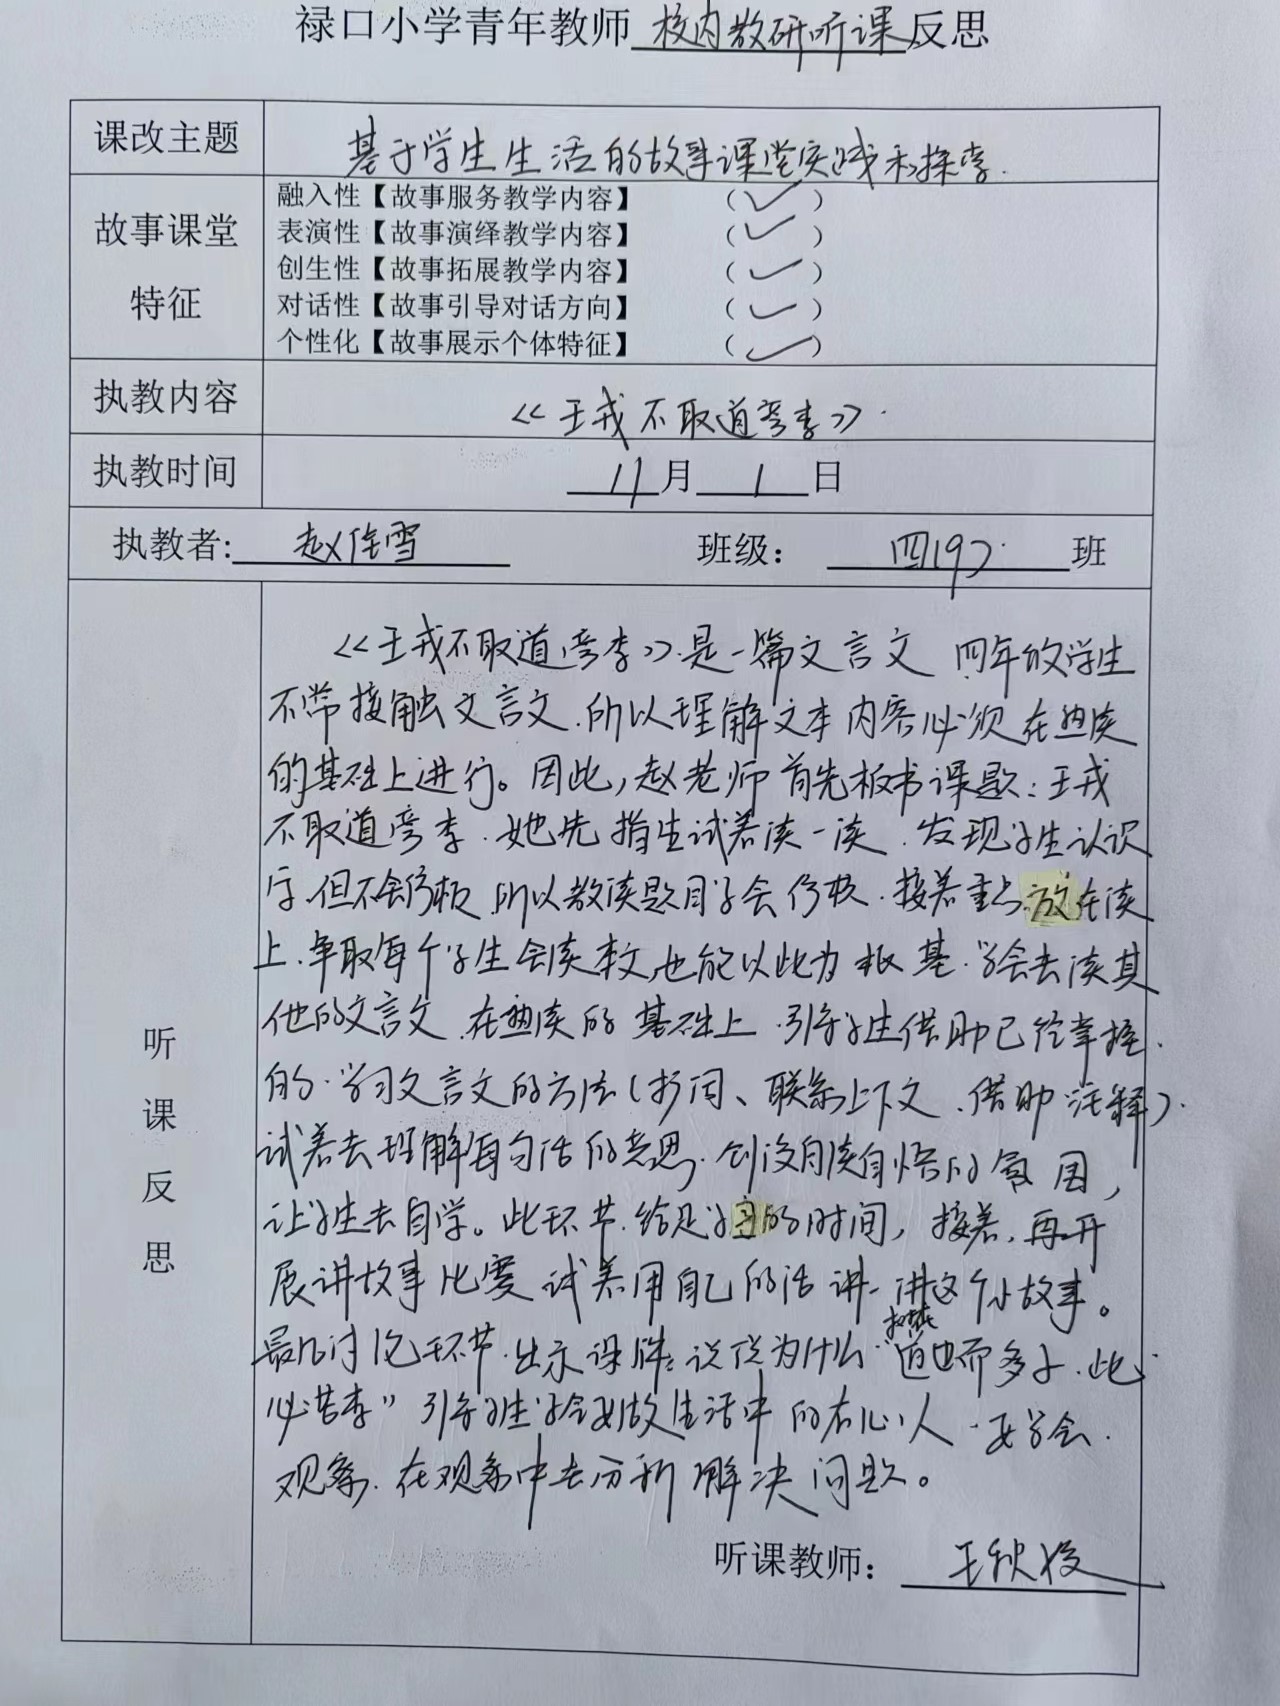 禄口小学青年教师校内教研听课反思
课改主题 基于学生生活的故事课堂实践和探索.
故事课堂特征
融入性【故事服务教学内容】 (✓)
表演性【故事演绎教学内容】 (✓)
创生性【故事拓展教学内容】 (✓)
对话性【故事引导对话方向】 (✓)
个性化【故事展示个体特征】 (✓)
执教内容 《王戎不取道旁李》.
执教时间 11月1日
执教者: 赵佳雪 班级: 四(9) 班
听课反思
《王戎不取道旁李》是一篇文言文 四年的学生
不常接触文言文.所以理解文本内容必须在熟读
的基础上进行。因此,赵老师首先板书课题:王戎
不取道旁李.她先指生试着读一读.发现学生认识
字.但不会停顿.所以教读题目学会停顿.接着重点放在读
上.争取每个学生会读本文,也能以此为根基.学会去读其
他的文言文.在熟读的基础上.引导学生借助已经掌握
的.学习文言文的方法(扩词、联系上下文、借助注释).
试着去理解每句话的意思.创设自读自悟的氛围,
让学生去自学。此环节.给足学生的时间,接着.再开
展讲故事比赛 试着用自己的话讲一讲这个小故事。
最后讨论环节.出示课件:说说为什么“树在道边而多子.此
必苦李”引导学生学会要做生活中的有心人.要学会.
观察.在观察中去分析解决问题。
听课教师: 王秋